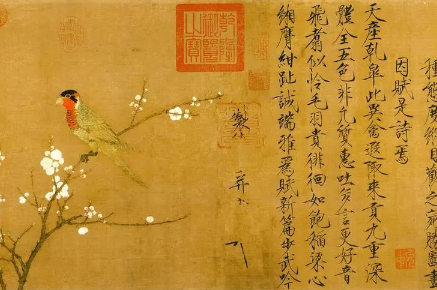 種態度縱目觀之宛勝圖畫
因賦是詩焉
天產乾皋此異禽遐陬來貢九重深
體全五色非凡質惠吐多言更好音
飛翥似憐毛羽貴徘徊如飽稻粱心
緗膺紺趾誠端雅為賦新篇步武吟
製
并書